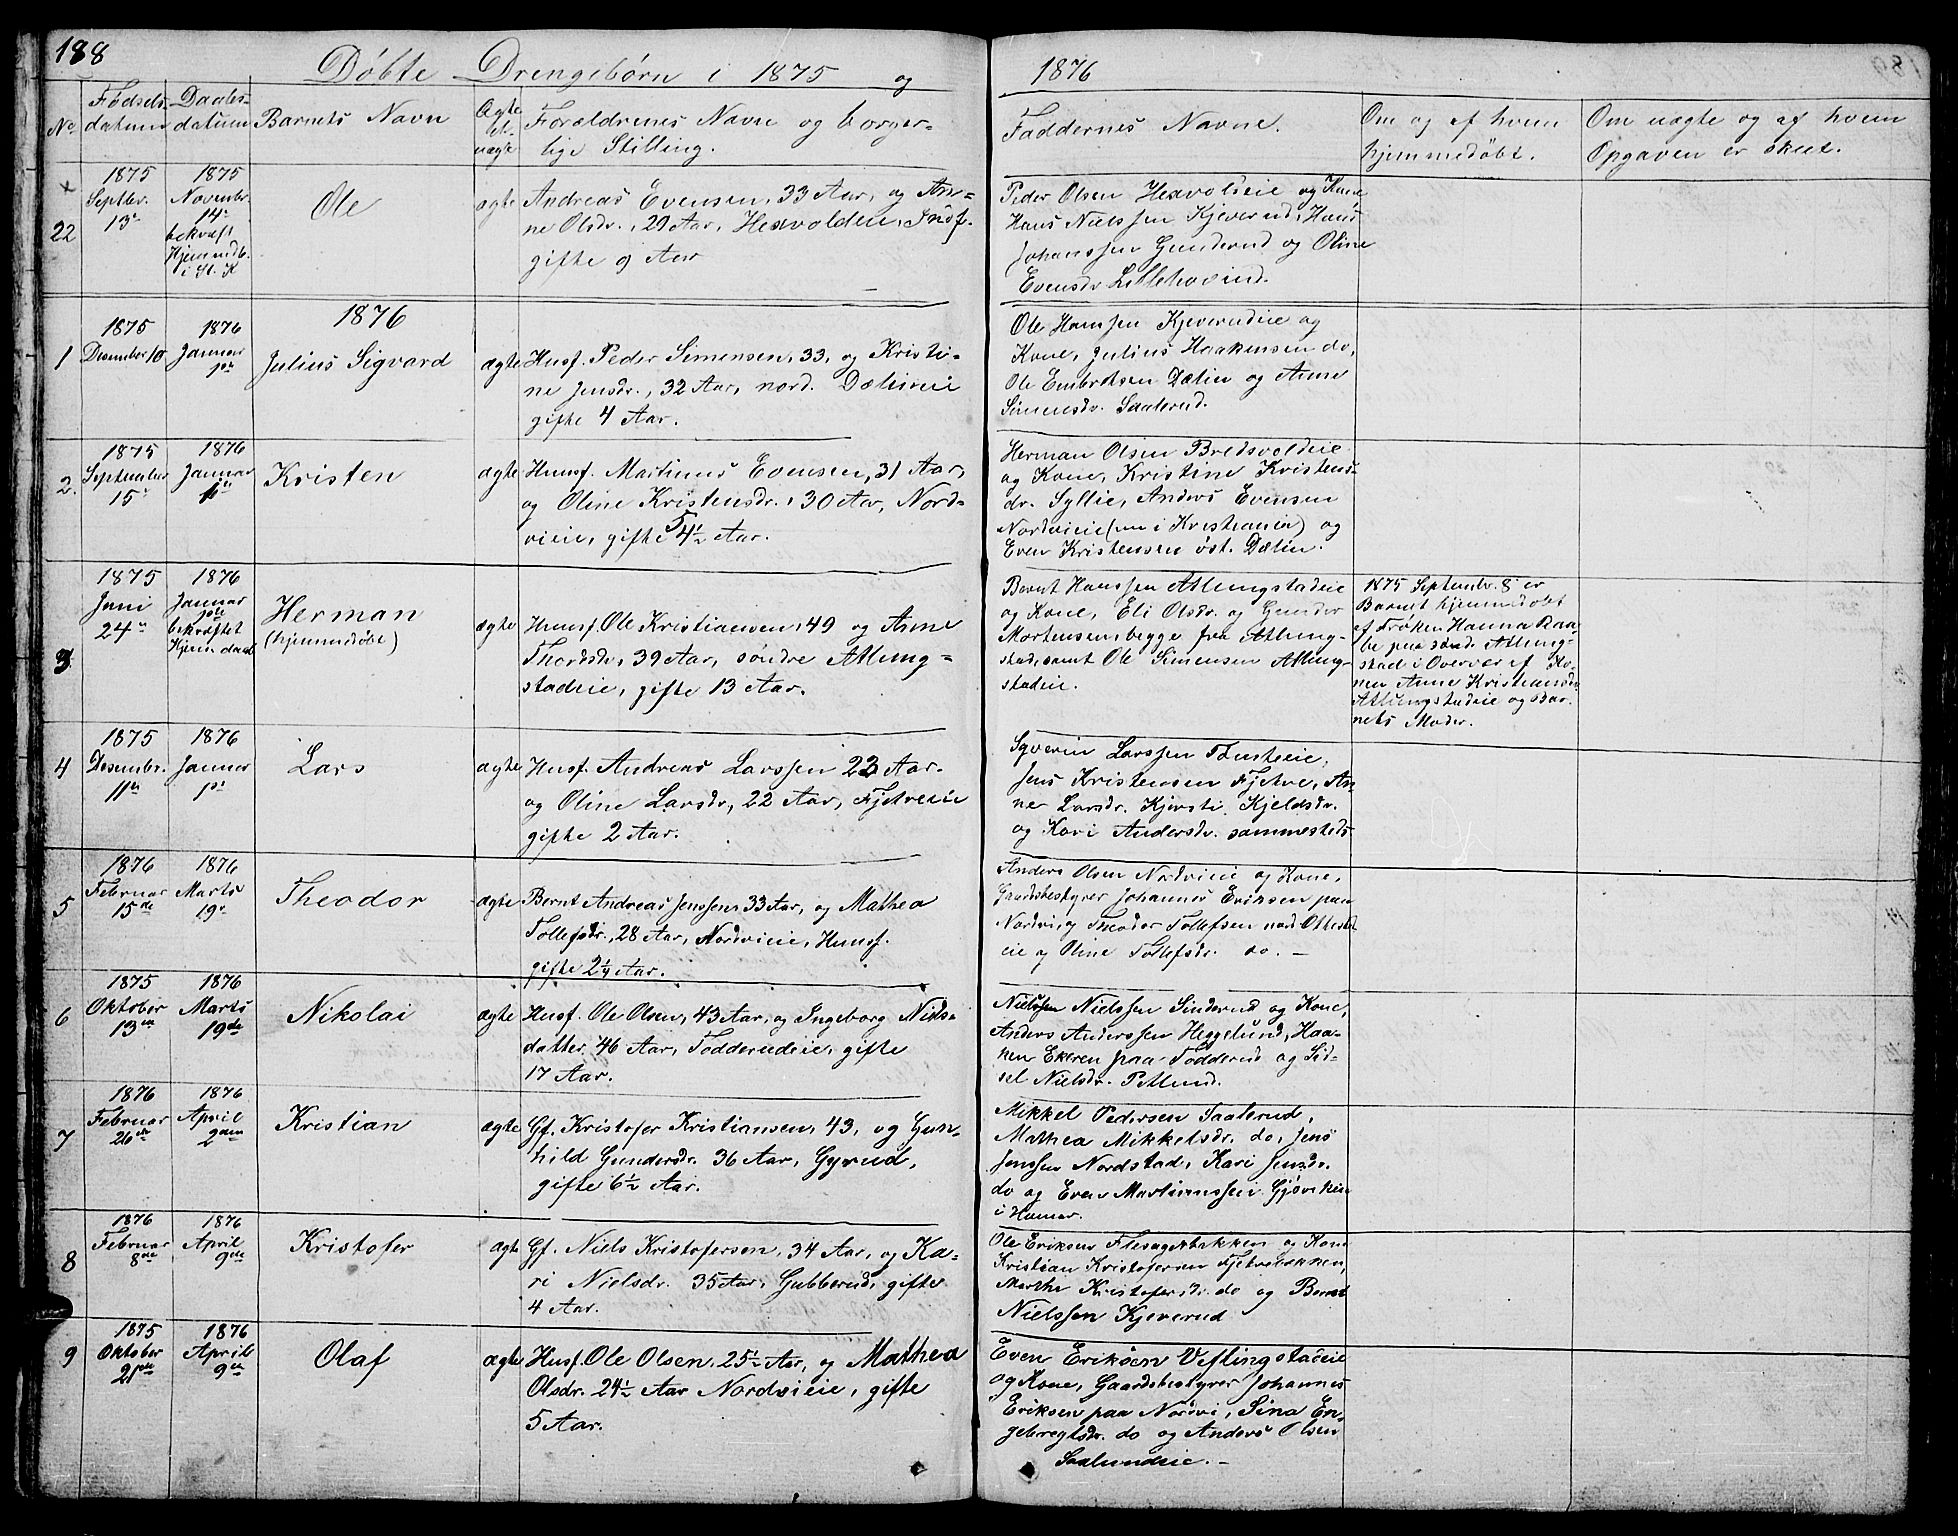 188
Døbte Drengebørn i 1875 og 1876
No
Fødsels-
datum
Daabs-
datum
Barnets Navn
Ægte
el.
uægte
Forældrenes Navne og borger-
lige Stilling.
Faddernes Navne.
Om og af hvem
hjemmedøbt.
Om uægte og af hvem
Opgaven er skeet.
22
1875
Septbr.
13de
1875
Novembr.
14de
bekræft
Hjemmdb.
i St. K
Ole
ægte
Andreas Evensen, 33 Aar, og An-
ne Olsdr., 29 Aar, Hexvoldeie, Inds.
gifte 9 Aar
Peder Olsen Hexvoldeie og Kone
Hans Nielssen Kjeverud, Hans
Johanssen Gunderud og Oline
Evensdr. Lillehovind.
1876
1
1875
Desember 10
1876
Januar
1ste
Julius Sigvard
ægte
Husf. Peder Simensen, 33, og Kristi-
ne Jensdr., 32 Aar, nord. Dælineie
gifte 4 Aar.
Ole Hanssen Kjeverudeie og
Kone, Julius Haakensen do,
Ole Embretsen Dælin og Anne
Simensdr. Saalerud.
2.
1875
September
15de
1876
Januar
1ste
Kristen
ægte
Huusf. Martinus Evensen, 31 Aar,
og Oline Kristensdr., 30 Aar, Nord-
vieie, gifte 5 4½ Aar.
Herman Olsen Bredsvoldeie
og Kone, Kristine Kristens-
dr. Syllie, Anders Evensen
Nordvieie (nu i Kristiania) og
Even Kristensen øst. Dælin.
3
1875
Juni
24de
1876
Januar
1ste
bekræftet
Hjemdaab
Herman
(hjemmedøbt)
ægte
Huusf. Ole Kristiansen, 49 og Anne
Thordsdr., 39 Aar, søndre Atlung-
stadeie, gifte 13 Aar.
Bernt Hanssen Atlungstadeie
og Kone, Eli Olsdr. og Gunder
Mortensen, begge fra Atlung-
stad, samt Ole Simensen Atlung-
stadeie.
1875 Septembr. 8de er
Barnet hjemmedøbt
af Frøken Hanna Raa-
be paa sønd. Atlung-
stad i Overvær af Ko-
nen Anne Kristiansdr.
Atlungstadeie og Bar-
nets Moder.
4
1875
Desembr.
11te
1876
Januar
1ste
Lars
ægte
Husf. Andreas Larssen 23 Aar.
og Oline Larsdr., 22 Aar, Fjetreeie
gifte 2 Aar.
Syverin Larssen
Jens Kristensen Fjetre, An-
ne Larsdr. Kjersti Kjeldsdr.
og Kari Andersdr. sammesteds
5
1876
Februar
15de
1876
Marts
19de
Theodor
ægte
Bernt Andreas Jenssen, 33 Aar, og Mathea
Tollefsdr., 28 Aar, Nordvieie, Huusf.
gifte 2¼ Aar.
Anders Olsen Nordvieie og Kone,
Gaardsbestyrer Johannes Eriksen paa
Nordvi, og Theodor Tollefsen nord Ottestad
eie og Oline Tollefsdr. do. —
6
1875
Oktober
13de
1876
Marts
19de
Nikolai
ægte
Husf. Ole Olsen, 43 Aar, og Ingeborg Niels-
datter 46 Aar, Fodderudeie, gifte
17 Aar.
Nielssen Nielssen Sinderud og Kone,
Anders Anderssen Heggelund, Haa-
ken Ekeren paa Fodderud og Sid-
sel Nielsdr. Petlund.
7
1876
Februar
26de
1876
April
2den
Kristian
ægte
Gf. Kristofer Kristiansen, 43, og Gun-
hild Gundersdr. 36 Aar, Gyrud,
gifte 6½ Aar.
Mikkel Pedersen Saalerud,
Mathea Mikkelsdr. do, Jens
Jenssen Nordstad, Kari Jensdr.
do og Even Martinussen Gjøviken
i Hamar.
8
1876
Februar
8de
1876
April
9de
Kristofer
ægte
Gf. Niels Kristofersen, 34 Aar, og Ka-
ri Nielsdr. 35 Aar, Gubberud, gifte
4 Aar.
Ole Eriksen Flesagerbakken og Kone
Kristian Kristofersen Fjetrebakken,
Marthe Kristofersdr. do og Bernt
Nielssen Kjeverud
9
1875
Oktober
21de
1876
April
9de
Olaf
ægte
Husf. Ole Olsen, 25½ Aar, og Mathea
Olsdr. 24½ Aar Nordvieie, gifte
5 Aar.
Even Eriksen Veflingstadeie
og Kone, Gaardsbestyrer Johannes
Eriksen paa Nordvi, Sina En-
gebregtsdr. do og Anders Olsen
Saalundeie. —